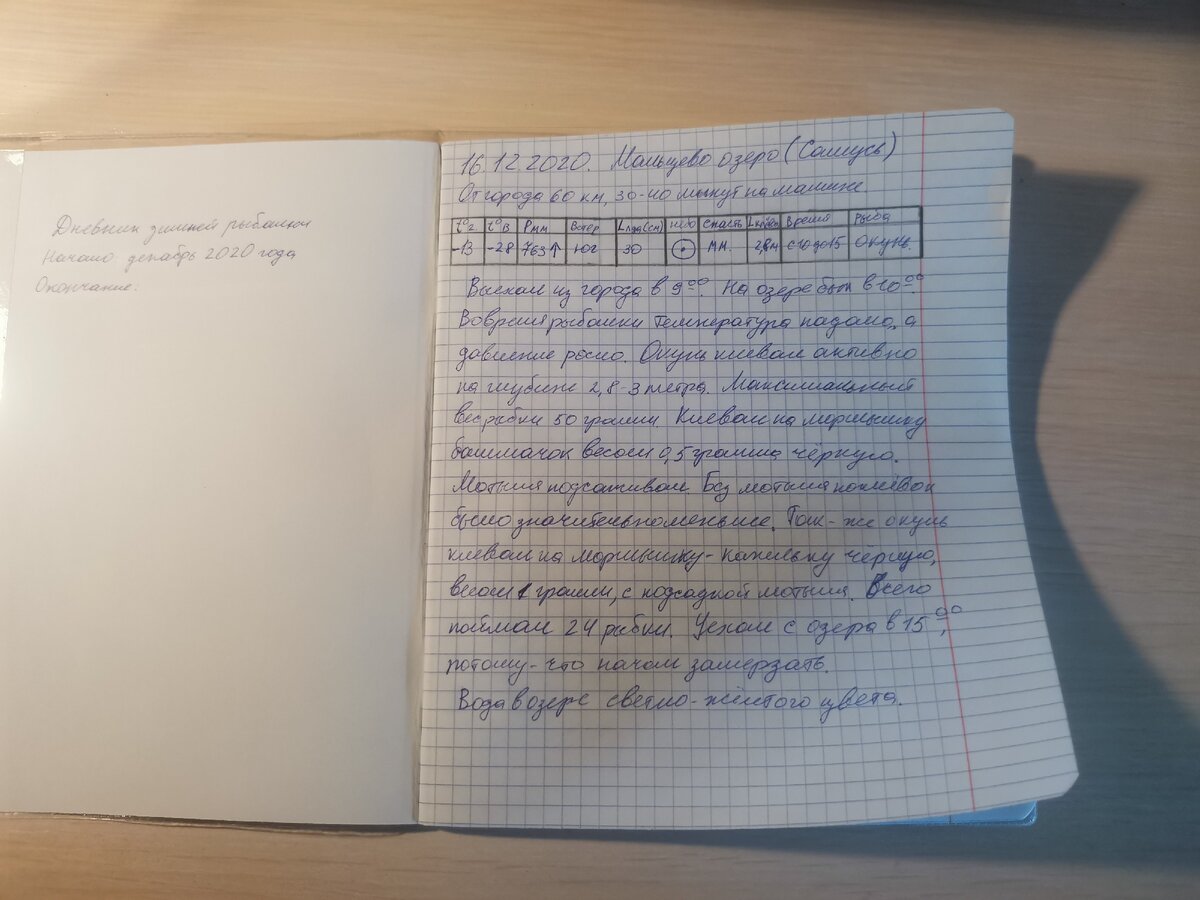 Дневник зимней рыбалки
Начало: декабрь 2020 года
Окончание:
16.12.2020. Мальцево озеро (Самусь)
От города 60 км, 30-40 минут на машине
t°г. t°в Pмм Ветер Lльда(см) небо снасть Lклёва Время рыба
-13 -28 763↑ юг 30 ММ. 2,8м с 10 до 15 окунь
Выехал из города в 9⁰⁰. На озере был в 10⁰⁰.
Во время рыбалки температура падала, а
давление росло. Окунь клевал активно
на глубине 2,8-3 метра. Максимальный
вес рыбки 50 грамм. Клевал на мормышку
башмачок весом 0,5 грамма чёрную.
Мотыля подсаживал. Без мотыля поклёвок
было значительно меньше. Так-же окунь
клевал на мормышку-капельку чёрную,
весом 1 грамм, с подсадкой мотыля. Всего
поймал 24 рыбки. Уехал с озера в 15⁰⁰,
потому-что начал замерзать.
Вода в озере светло-жёлтого цвета.